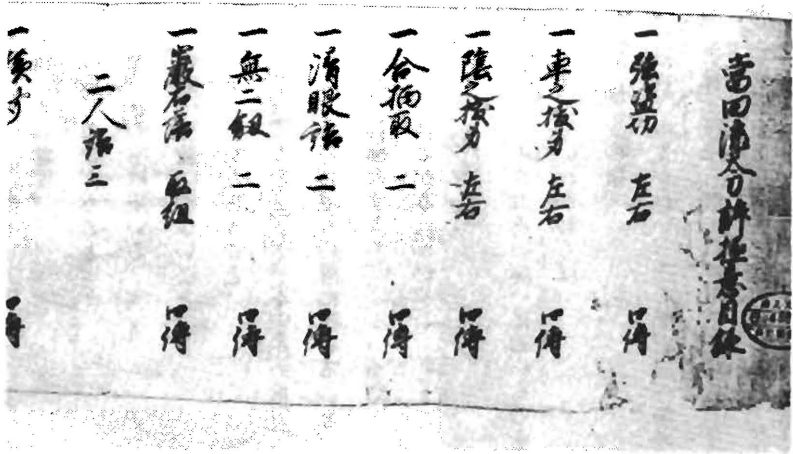 當田流太刀許極意目録
一強盗切 左右 口傳
一車之拔刀 左右 口傳
一陰之拔刀 左右 口傳
一合柄取 二 口傳
一清眼詰 二 口傳
一無二釼 二 口傳
一巖石落 取組 口傳
二人詰三
一 口傳